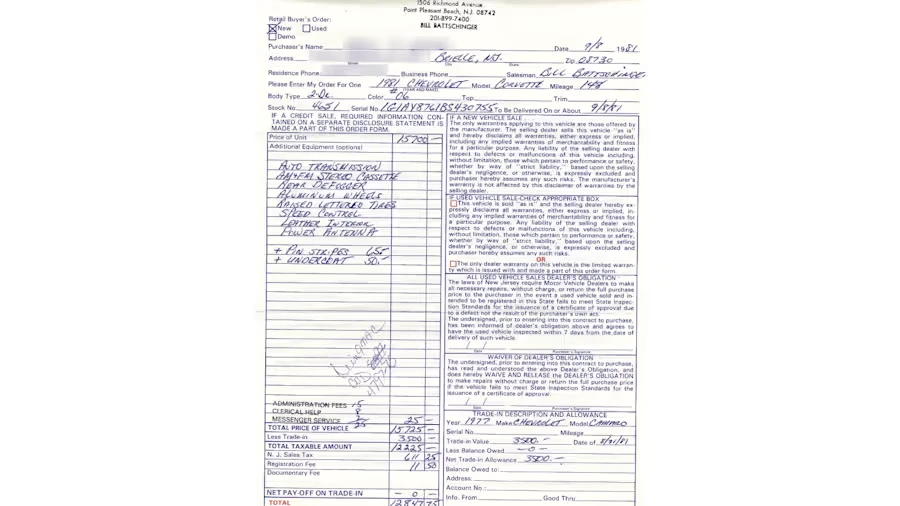 1506 Richmond Avenue
Point Pleasant Beach, N.J. 08742
201-899-7400
BILL BATTSCHINGER
Retail Buyer's Order:
New Used
Demo
Purchaser's Name Date 9/8 1981
Address BRIELLE, N.J. Zip 08730
Residence Phone Business Phone Salesman BILL BATTSCHINGER
Please Enter My Order For One 1981 CHEVROLET Model CORVETTE Mileage 148
Body Type 2-Dr. Color #06 Top Trim
Stock No. 4651 Serial No. 1G1AY8761BS430755 To Be Delivered On or About 9/8/81
IF A CREDIT SALE, REQUIRED INFORMATION CON-
TAINED ON A SEPARATE DISCLOSURE STATEMENT IS
MADE A PART OF THIS ORDER FORM.
Price of Unit 15700 —
Additional Equipment (options)
AUTO TRANSMISSION
AM+FM STEREO CASSETTE
REAR DEFOGGER
ALUMINUM WHEELS
RAISED LETTERED TIRES
SPEED CONTROL
LEATHER INTERIOR
POWER ANTENNA
+ PIN STRIPES 65.-
+ UNDERCOAT 50.-
ADMINISTRATION FEES 15
CLERICAL HELP
MESSENGER SERVICE 25 25 —
TOTAL PRICE OF VEHICLE 15725 —
Less Trade-in 3500 —
TOTAL TAXABLE AMOUNT 12225 —
N. J. Sales Tax 611 25
Registration Fee 11 50
Documentary Fee
NET PAY-OFF ON TRADE-IN — 0 —
TOTAL 12847.75
IF A NEW VEHICLE SALE
The only warranties applying to this vehicle are those offered by
the manufacturer. The selling dealer sells this vehicle "as is"
and hereby disclaims all warranties, either express or implied,
including any implied warranties of merchantability and fitness
for a particular purpose. Any liability of the selling dealer with
respect to defects or malfunctions of this vehicle including,
without limitation, those which pertain to performance or safety,
whether by way of "strict liability," based upon the selling
dealer's negligence, or otherwise, is expressly excluded and
purchaser hereby assumes any such risks. The manufacturer's
warranty is not affected by this disclaimer of warranties by the
selling dealer.
IF USED VEHICLE SALE-CHECK APPROPRIATE BOX
This vehicle is sold "as is" and the selling dealer hereby ex-
pressly disclaims all warranties, either express or implied, in-
cluding any implied warranties of merchantability and fitness
for a particular purpose. Any liability of the selling dealer with
respect to defects or malfunctions of this vehicle including,
without limitation, those which pertain to performance or safety,
whether by way of "strict liability," based upon the selling
dealer's negligence, or otherwise, is expressly excluded and
purchaser hereby assumes any such risks.
OR
The only dealer warranty on this vehicle is the limited warran-
ty which is issued with and made a part of this order form.
ALL USED VEHICLES SALES DEALER'S OBLIGATION
The laws of New Jersey require Motor Vehicle Dealers to make
all necessary repairs, without charge, or return the full purchase
price to the purchaser in the event a used vehicle sold and in-
tended to be registered in this State fails to meet State Inspec-
tion Standards for the issuance of a certificate of approval due
to a defect not the result of the purchaser's own act.
The undersigned, prior to entering into this contract to purchase,
has been informed of dealer's obligation above and agrees to
have the used vehicle inspected within 7 days from the date
of delivery of such vehicle.
Date Purchaser's Signature
WAIVER OF DEALER'S OBLIGATION
The undersigned, prior to entering into this contract to purchase,
has read and understood the above Dealer's Obligation, and
does hereby WAIVE AND RELEASE the DEALER'S OBLIGATION
to make repairs without charge or return the full purchase price
if the vehicle fails to meet State Inspection Standards for the
issuance of a certificate of approval.
Date Purchaser's Signature
TRADE-IN DESCRIPTION AND ALLOWANCE
Year 1977 Make CHEVROLET Model CAMARO
Serial No. Mileage
Trade-in Value 3500.- Date of 8/31/81
Less Balance Owed —0—
Net Trade-in Allowance 3500.—
Balance Owed to:
Address:
Account No.:
Info. From Good Thru